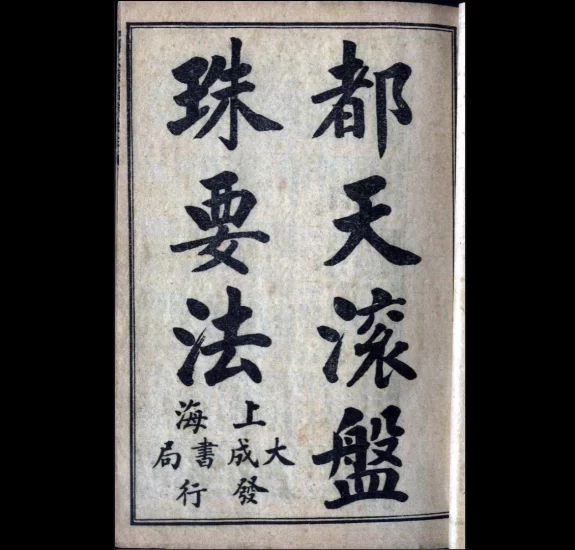 都天滚盤
珠要法
上海大成書局發行